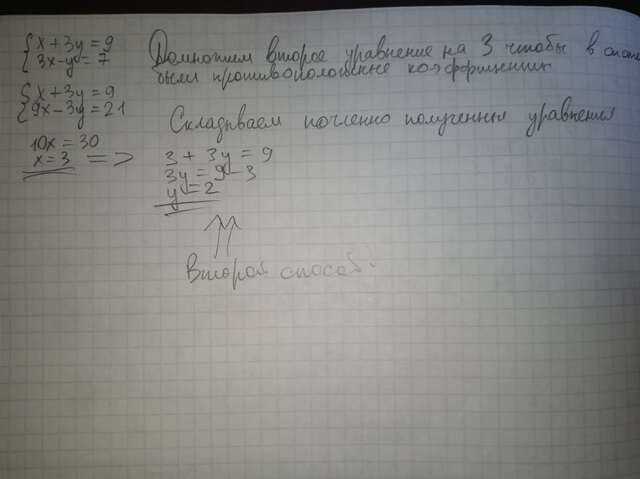 x + 3y = 9
3x - y = 7
Домножим второе уравнение на 3 чтобы в
были противоположные коэффициенты
x + 3y = 9
9x - 3y = 21
Складываем почленно полученные уравнения
10x = 30
x = 3 =>
3 + 3y = 9
3y = 9 - 3
y = 2
Второй способ